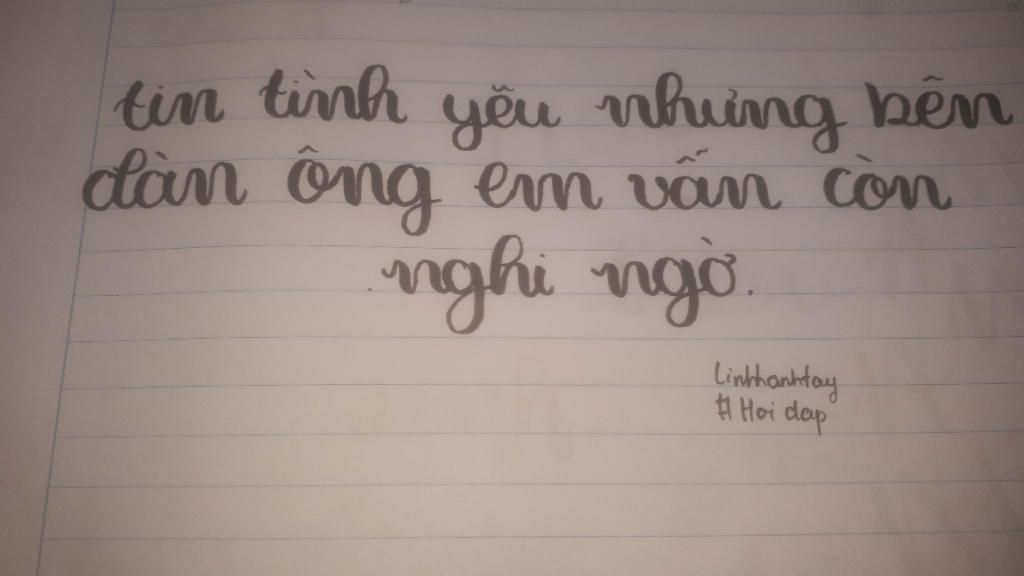 tin tình yêu nhưng bên
đàn ông em vẫn còn
.nghi ngờ.
Linhhanhtay
# Hoi dap